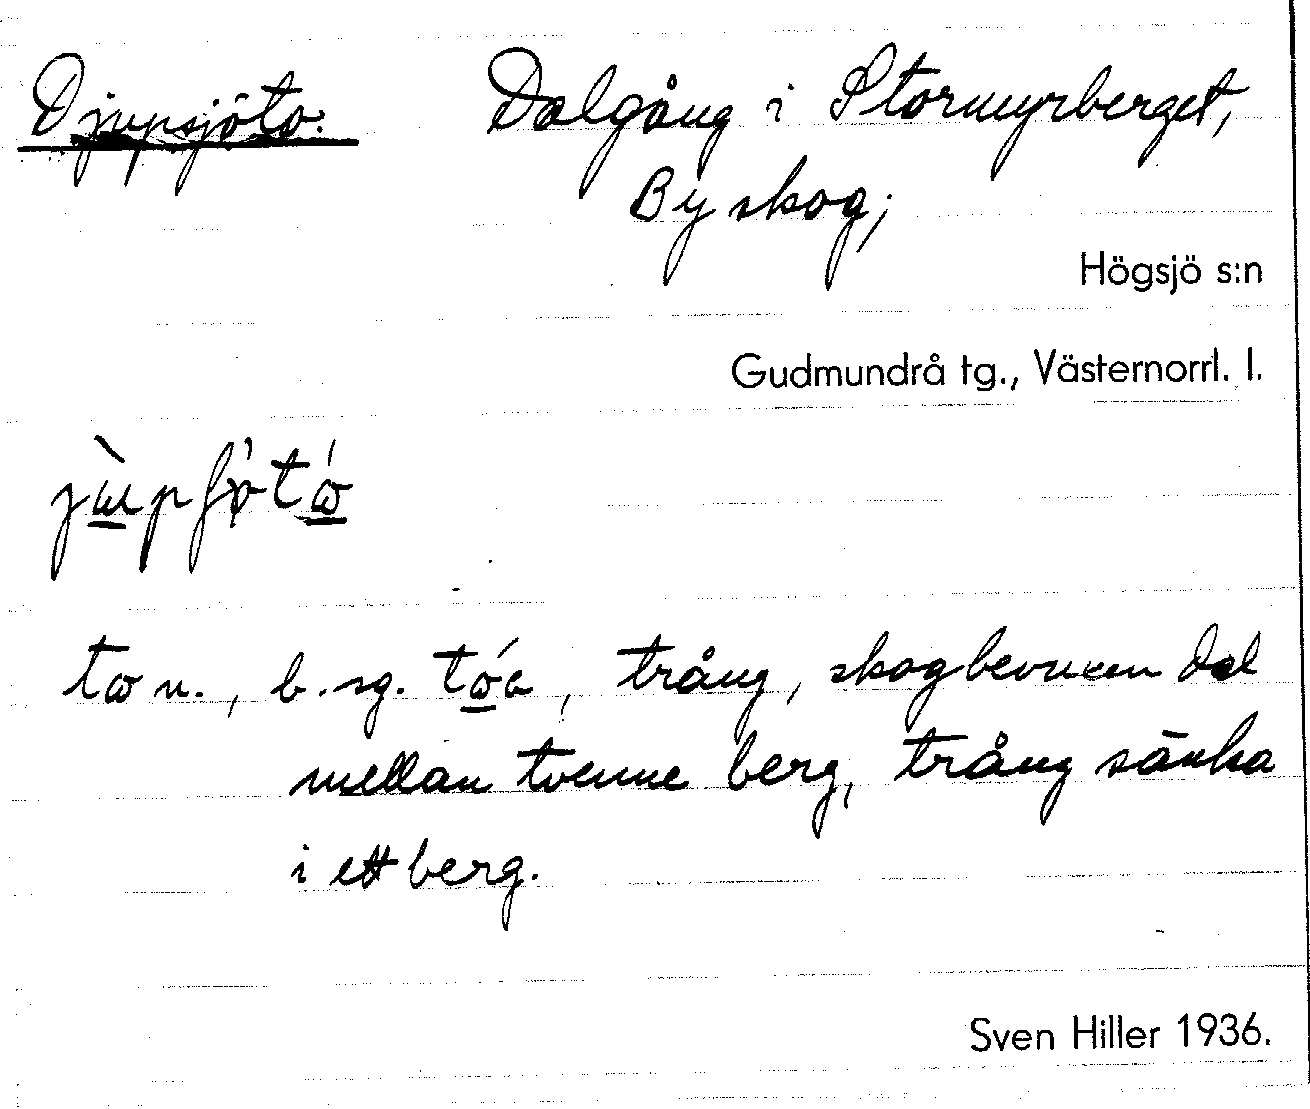 Djupsjöto: Dalgång i Stormyrberget,
By skog;
Högsjö s:n
Gudmundrå tg., Västernorrl. l.
to n., b. sg. , trång, skogbevuxen dal
mellan tvenne berg, trång sänka
i ett berg.
Sven Hiller 1936.